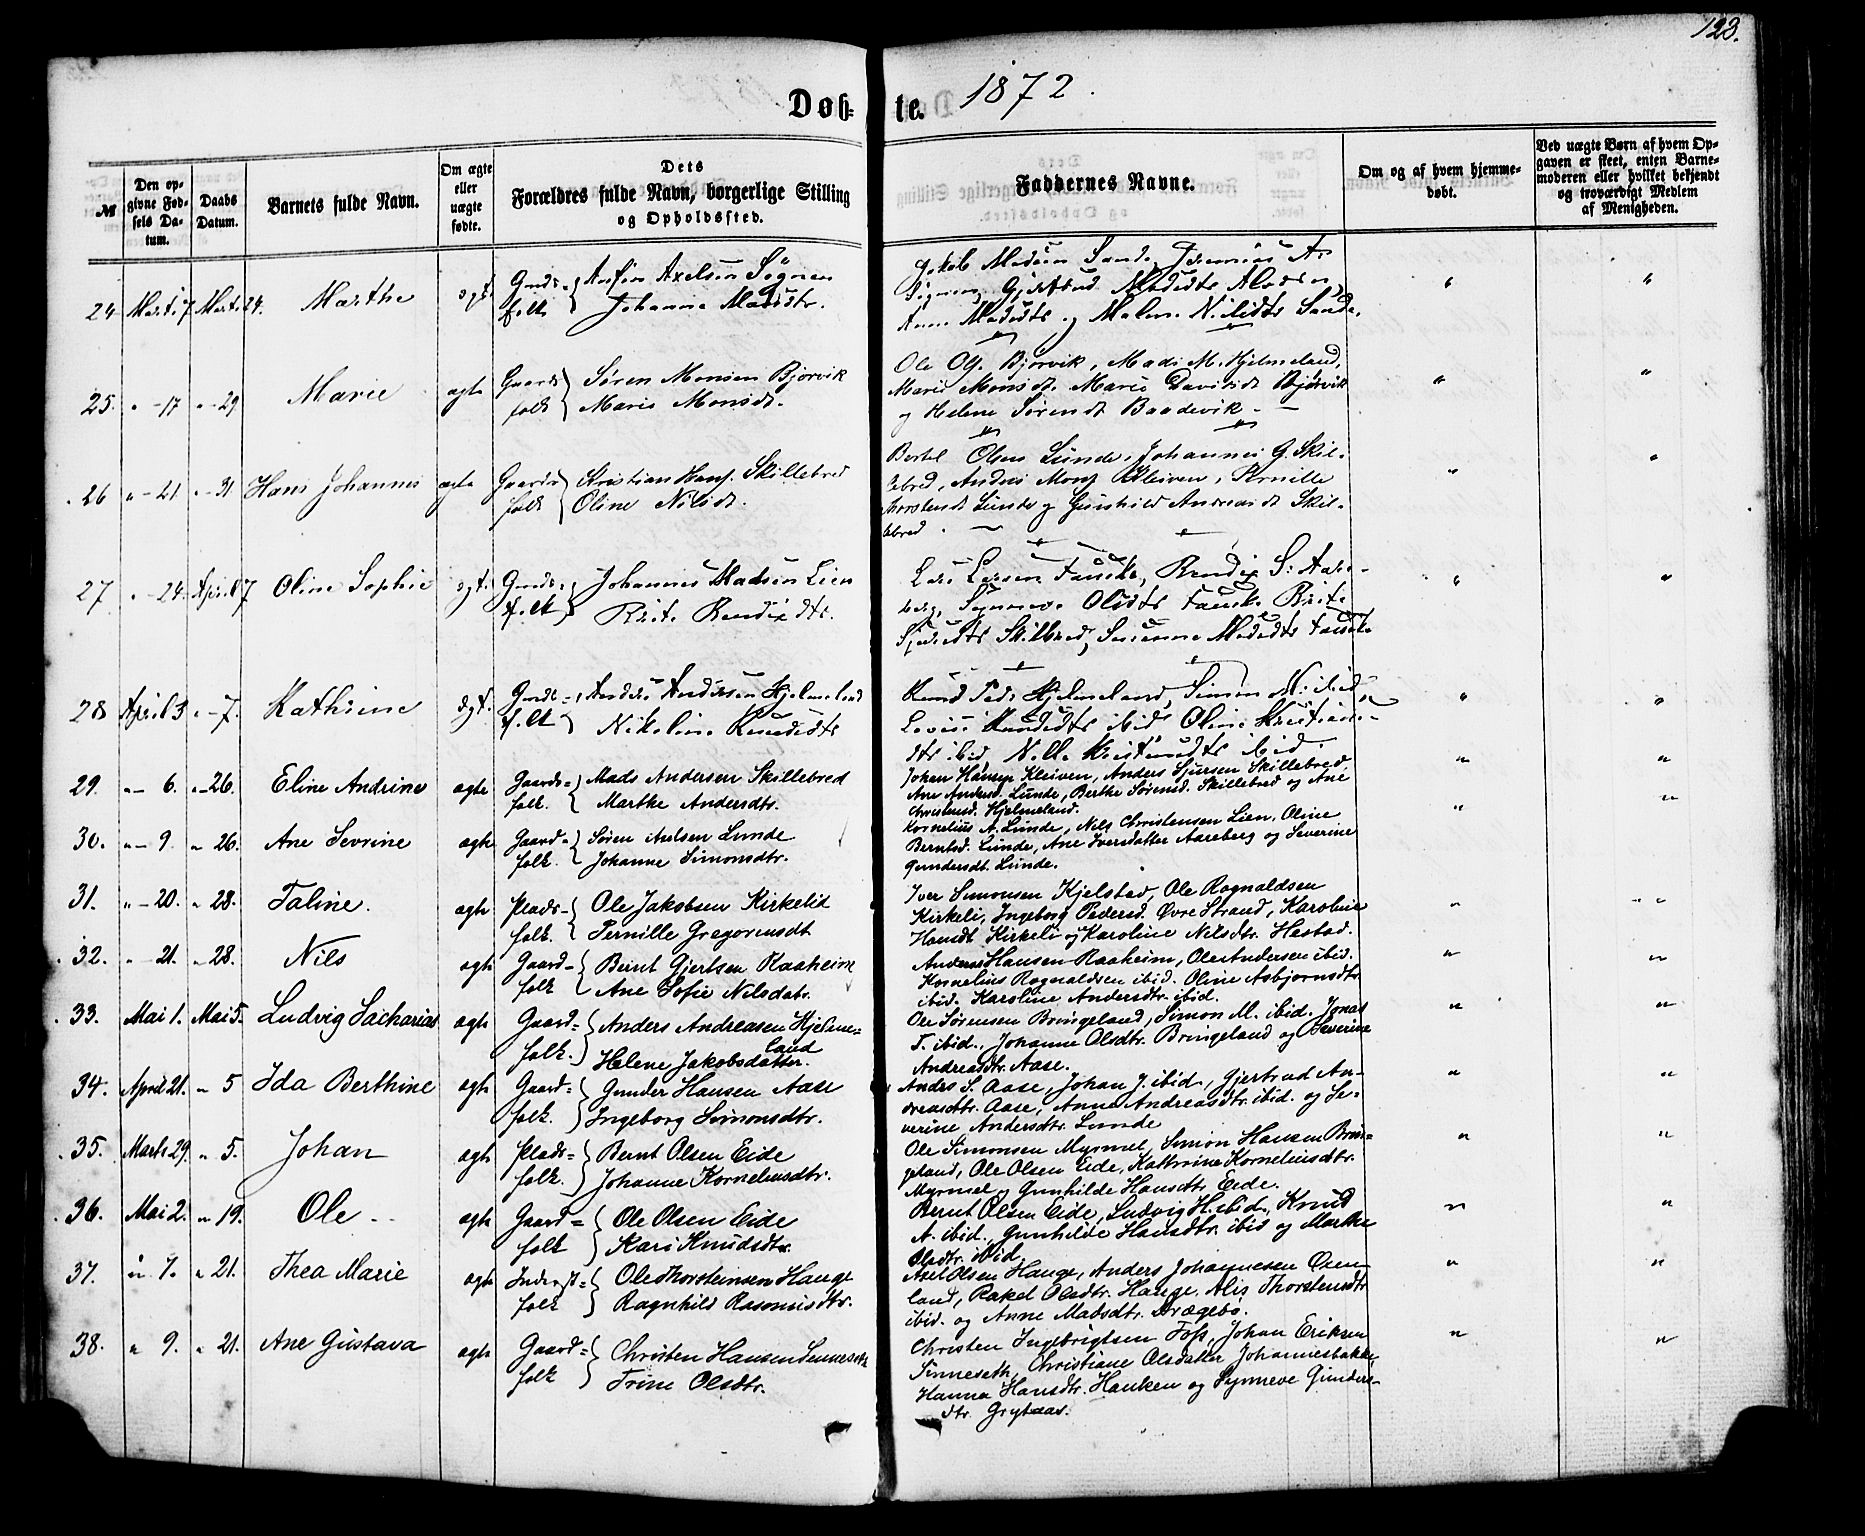 123.
Døb- te. 1872.
№ Den opgivne Fødsels Datum. Daabs Datum. Barnets fulde Navn. Om ægte eller uægte fødte. Dets Forældres fulde Navn, borgerlige Stilling og Opholdssted. Faddernes Navne. Om og af hvem hjemmedøbt. Ved uægte Børn af hvem Opgaven er skeet, enten Barnemoderen eller hvilket bekjendt og troværdigt Medlem af Menigheden.
24 Marti 7 Marti 24. Marthe ægt.
Anfin Axelsen
Johanne Madsdtr.
Jakob Madsen Sande
Anne Madsdtr og Nilsdtr Sande.
25. " - 17 " - 29 Marie ægte Gaardsfolk
Søren Monsen Bjorvik
Marie Monsdt.
Ole Ols. Bjorvik, Mads M. Hjelmeland,
Marie Monsdt. Marie Davidsdt Bjørvik
og Helene Sørensdt
26 " - 21 " - 31 Hans Johannes ægte Gaardsfolk
Kristian Hans. Skillebred
Oline Nilsdt.
Bertel Olsen Lunde, Johannes G. Skil-
lebred, Anders Kleiven, Pernille
Lunde og Gunhild Andreasdt Skil-
lebred.
27 " - 24. April 7 Oline Sophie ægt.
Johannes Madsen Lien
Brite Bendixdtr.
Lars Larsen Fauske, Bendix S. Aare-
berg, Synneve Olsdtr Fauske Brite
Sjursdtr Skilbred, Susanne Madsdtr Fauske
28 April 3 " - 7. Kathrine ægt.
Anders Andersen Hjelmeland
Nikoline Knudsdtr
Knud Peds Hjelmeland, Simon N. ibid
Lovise Knudsdtr ibid Oline Kristians-
dtr ibid, ibid
29. " - 6. " - 26. Eline Andrine ægte Gaards=folk.
Mads Andersen Skillebred
Marthe Andersdtr.
Johan Hansen Kleiven, Anders Sjursen Skillebred,
Ane Andersd. Lunde, Berthe Sørensd. Skillebred og Ane
Christensd. Hjelmeland.
30. " - 9. " 26. Ane Sevrine ægte Gaard=folk.
Søren Axelsen Lunde
Johanne Simonsdtr.
Kornelius A. Lunde, Nils Christensen Lien, Oline
Berntsd. Lunde, Ane Iversdatter Aareberg og Severine
Gundersdt. Lunde.
31. " - 20. " 28. Taline. ægte Plads-folk.
Ole Jakobsen Kirkelid
Pernille Gregoriusdt
Iver Simonsen Kjelstad, Ole Rognaldsen
Kirkeli, Ingeborg Pedersd. Øvre Strand, Karoline
Hansdt Kirkeli og Karoline Nilsdtr. Hestad.
32. " - 21. " 28. Nils ægte Gaard-folk
Bernt Gjertsen Raaheim
Ane Sofie Nilsdatr.
Anders Hansen Raaheim, Ole Andersen ibid.
Kornelius Rognaldsen ibid. Oline Asbjørnsdtr.
ibid. Karoline Andersdtr. ibid.
33. Mai 1. Mai 5. Ludvig Sacharias ægte Gaard=folk.
Anders Andreasen Hjelme-
land
Helene Jakobsdatter.
Ole Sørensen Bringeland, Simon M. ibid. Jonas
T. ibid., Johanne Olsdtr. Bringeland og Severine
Andreasdtr. Aase.
34. April 21. " 5 Ida Berthine ægte Gaard=folk.
Gunder Hansen Aase
Ingeborg Simonsdtr.
Anders S. Aase, Johan J. ibid., Gjertrud An-
dreasdtr. Aase, Anne Andreasdtr. ibid. og Se-
verine Andersdtr. Lunde
35. Marts 29. " 5. Johan ægte Plads=folk.
Bernt Olsen Eide
Johanne Korneliusdtr.
Ole Simonsen Myrmel, Simon Hansen Brin-
geland, Ole Olsen Eide, Kathrine Korneliusdtr.
Myrmel og Gunhilde Hansdtr. Eide.
36. Mai 2. " 19. Ole ægte Gaard=folk
Ole Olsen Eide
Kari Knudsdtr.
Bernt Olsen Eide, Ludvig H. ibid., Knud
A. ibid., Gunhilde Hansdtr. ibid og Marthe
Olsdtr. ibid.
37. " 7. " 21. Thea Marie ægte Inderst=folk
Ole Thorsteinsen Hauge
Ragnhild Rasmusdtr.
Axel Olsen Hauge, Anders Johannesen Øsen-
land, Rakel Olsdtr. Hauge, Alis Thorstensdtr
ibid. og Anne Madsdtr. Drægebø.
38. " 9. " 21. Ane Gustava ægte Gaard=folk
Christen Hansen Sinneseth
Trine Olsdtr.
Christen Ingebrigtsen Foss, Johan Eriksen
Sinneseth, Christiane Olsdatter Johannesbakke,
Hanna Hansdtr. Hauken og Synneve Gunders-
dtr. Grytaas.